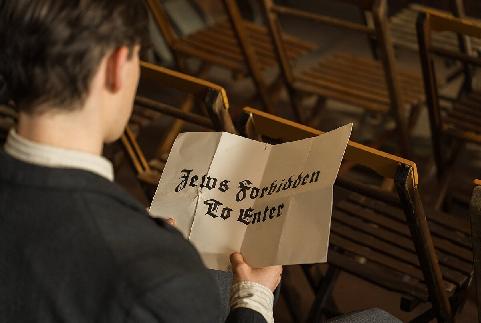 Jews Forbidden
To Enter